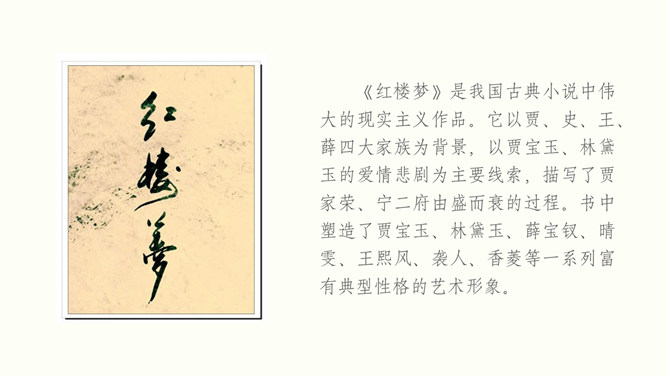 红楼梦
《红楼梦》是我国古典小说中伟
大的现实主义作品。它以贾、史、王、
薛四大家族为背景，以贾宝玉、林黛
玉的爱情悲剧为主要线索，描写了贾
家荣、宁二府由盛而衰的过程。书中
塑造了贾宝玉、林黛玉、薛宝钗、晴
雯、王熙风、袭人、香菱等一系列富
有典型性格的艺术形象。